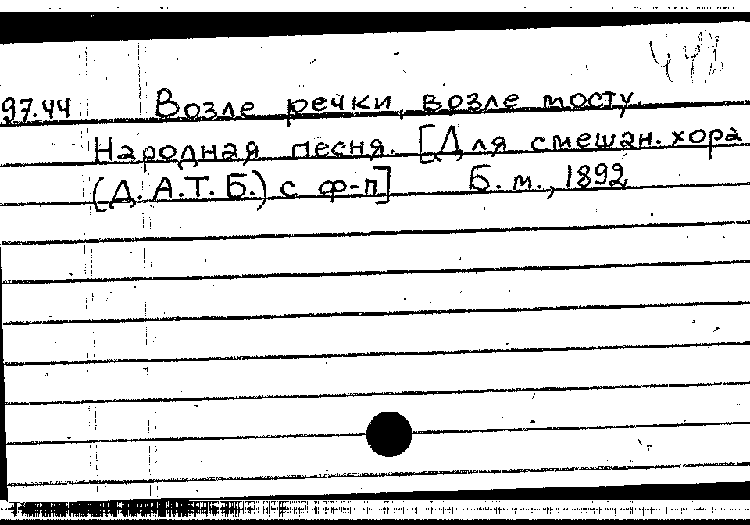 97.44 Возле речки, возле мосту.
Народная песня. [Для смешан. хора
(Д. А. Т. Б.) с ф-п] Б. м., 1892